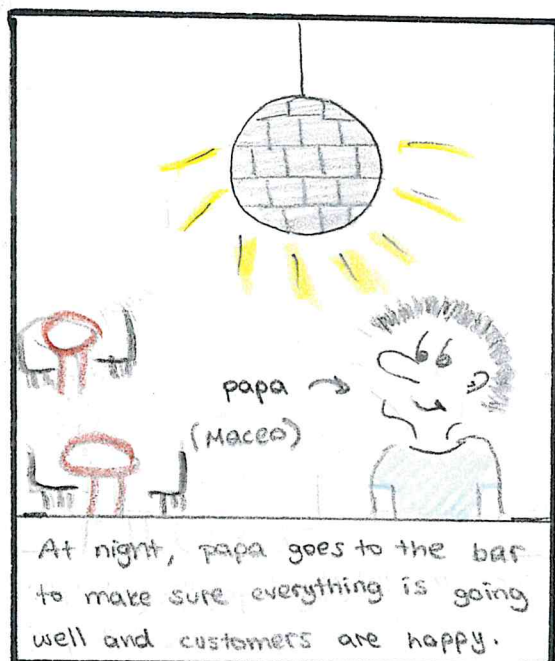 papa →
(Maceo)
At night, papa goes to the bar
to make sure everything is going
well and customers are happy.